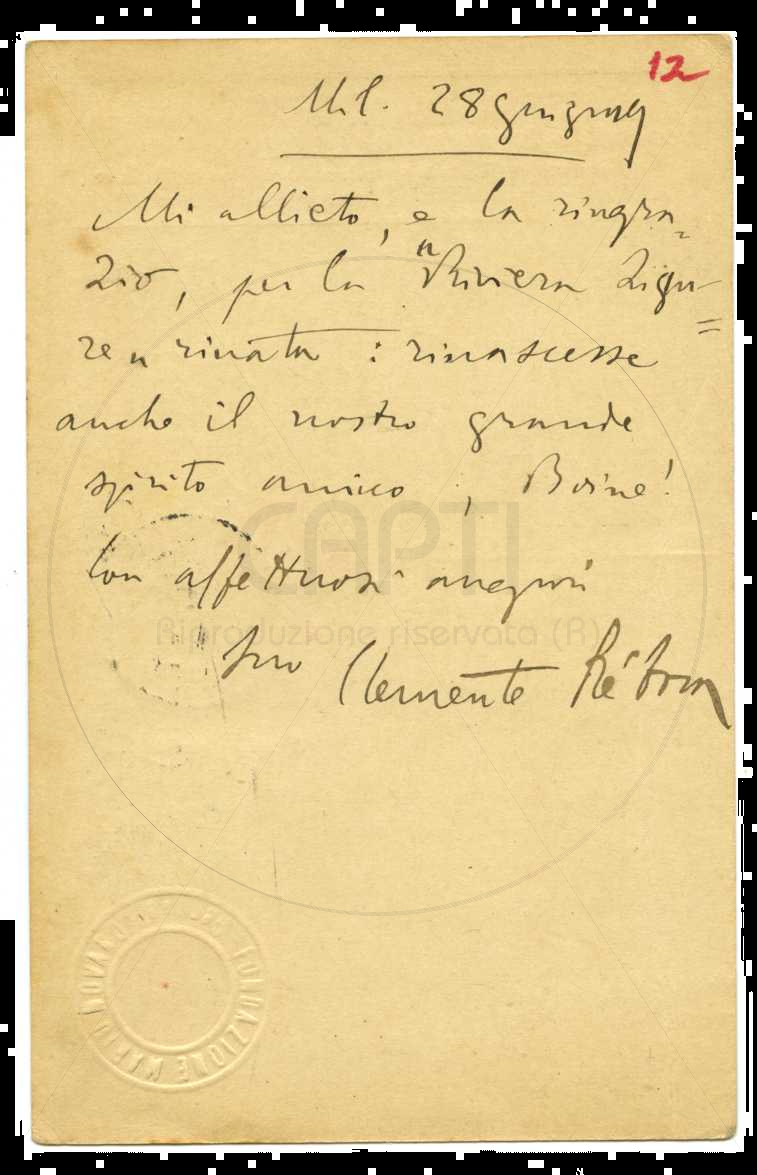 12
Mil. 28 giugno 19
Mi allieto, e la ringra=
zio, per la "Riviera Ligu=
re" rinata: rinascesse
anche il nostro grande
spirito amico, Boine!
Con affettuosi auguri
Suo Clemente Rèbora
CAPTI
Riproduzione riservata (R)
FONDAZIONE MARIO NOVARO